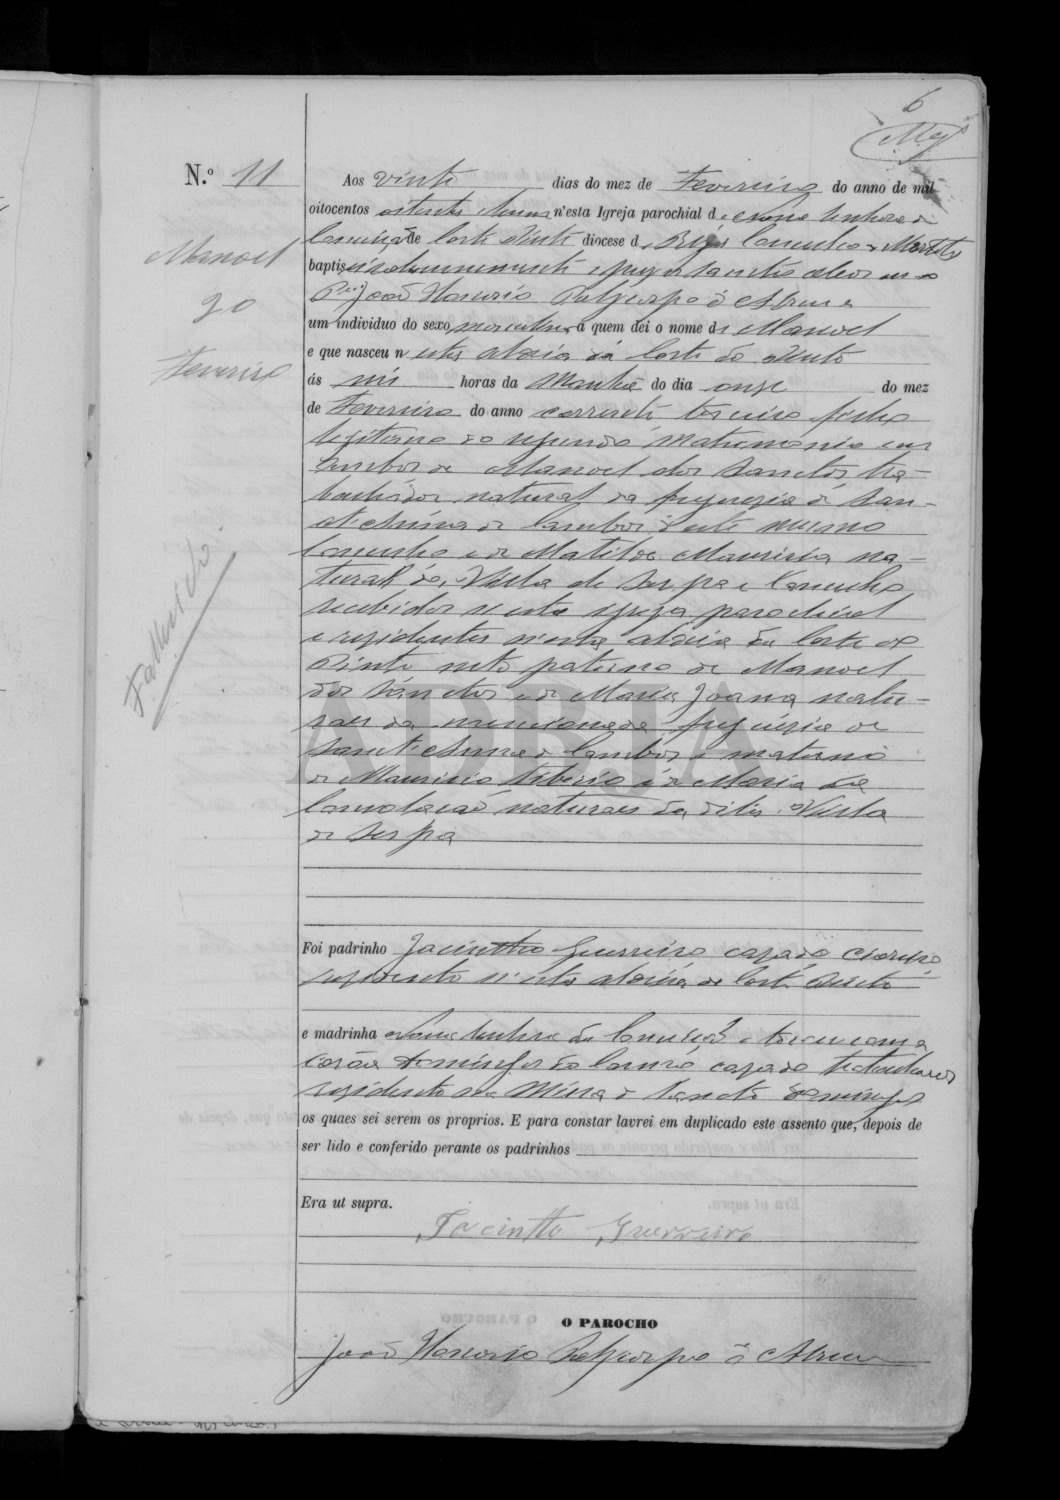 6
N.º 11
Manoel
20
Fevereiro
Fallecido
Aos vinte dias do mez de Fevereiro do anno de mil
oitocentos oitenta n'esta Igreja parochial de Nossa Senhora da
Conceição de Corte Pinto diocese de Beja Concelho de Mertola
baptisei solemnemente e puz os Sanctos oleos
João Honorio Policarpo d'Abreu
um individuo do sexo masculino a quem dei o nome de Manoel
e que nasceu n'esta aldeia da Corte do Pinto
ás seis horas da Manhã do dia onze do mez
de Fevereiro do anno corrente terceiro filho
legitimo do segundo matrimonio em
ambos de Manoel dos Sanctos tra-
balhador natural da freguezia de San-
ct'Anna de Cambas d'este mesmo
Concelho e de Matilde Mauricia na-
tural da Villa de Serpa e Concelho
recebidos n'esta igreja parochial
e residentes n'esta aldeia da Corte do
Pinto neto paterno de Manoel
dos Sanctos e de Maria Joana natu-
raes da mencionada freguezia de
Sanct'Anna de Cambas e materno
de Mauricio Tiberio e de Maria da
Consolação naturaes da dita Villa
de Serpa
Foi padrinho Jacintho Guerreiro casado
residente n'esta aldeia de Corte Pinto
e madrinha Nossa Senhora da Conceição e tocou com a
corôa Domingos do casado trabalhador
residente na Mina de Sancto Domingos
os quaes sei serem os proprios. E para constar lavrei em duplicado este assento que, depois de
ser lido e conferido perante os padrinhos
Era ut supra.
Jacintto Guerreiro
O PAROCHO
João Honorio Policarpo d'Abreu
ADBJA